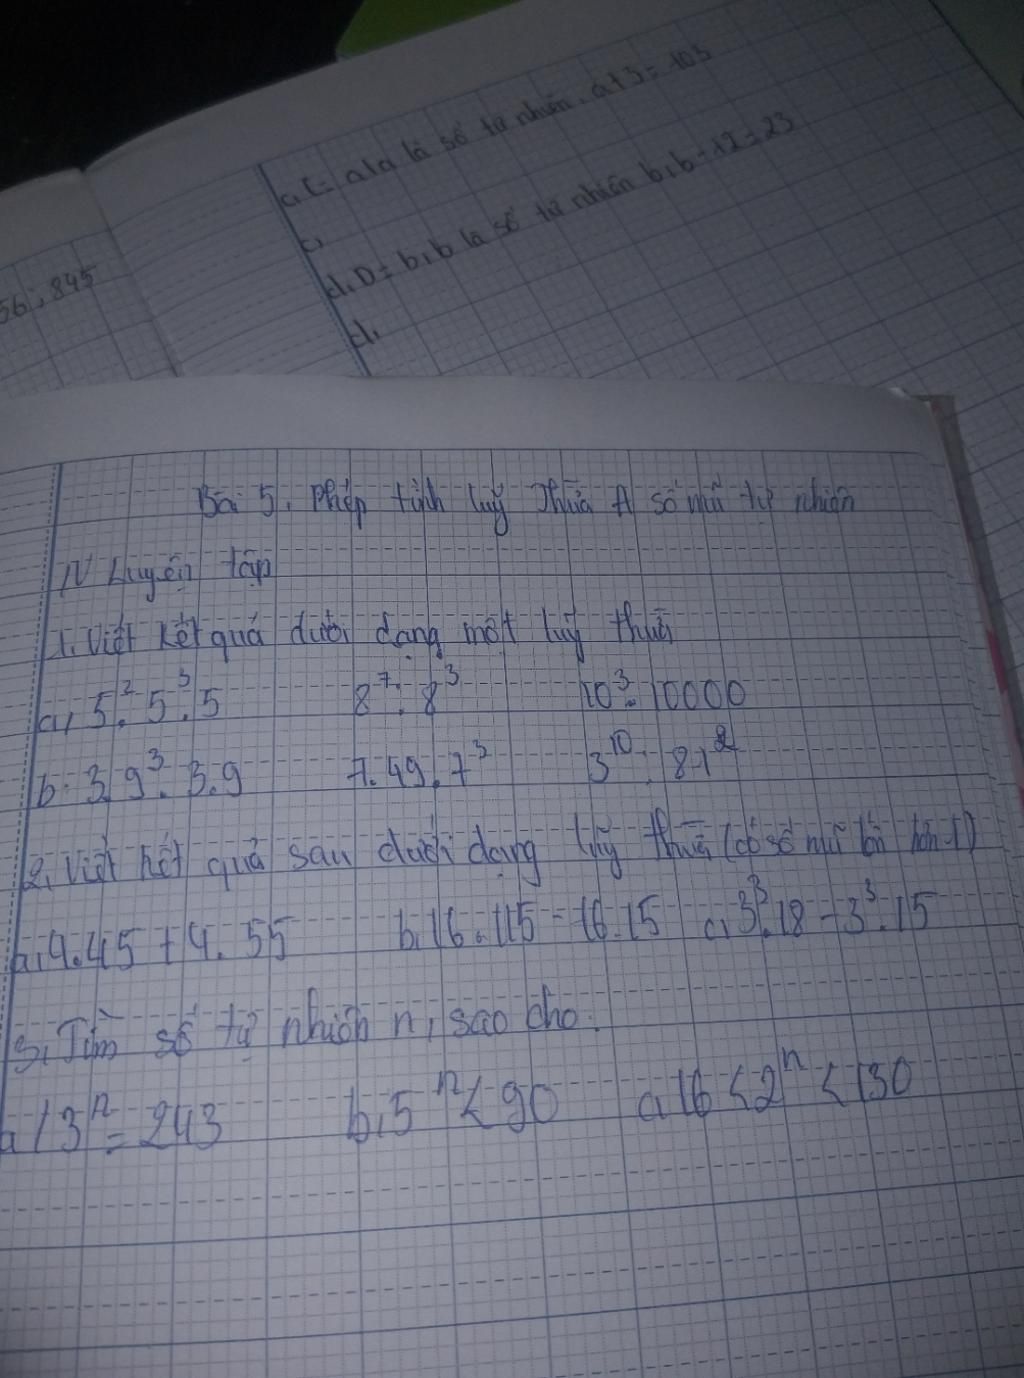 a, C = a, a là số tự nhiên, a + 3 = 103
c,
d, D = b, b là số tự nhiên b, b - 12 = 23
d,
56; 845
Bài 5. Phép tính luỹ Thừa số mũ tự nhiên
IV Luyện tập
1, Viết kết quả dưới dạng một luỹ thừa
a, 5². 5³. 5 8⁷: 8³ 10³. 10000
b. 3, 9³. 3. 9 7. 49. 7³ 3¹⁰: 81²
2, Viết kết quả sau dưới dạng luỹ thừa (có số mũ lớn hơn 1)
a, 4. 45 + 4. 55 b, 16. 115 - 16. 15 c, 3³. 18 - 3³. 15
3, Tìm số tự nhiên n, sao cho.
a, 3ⁿ = 243 b, 5ⁿ < 90 a 16 < 2ⁿ < 130